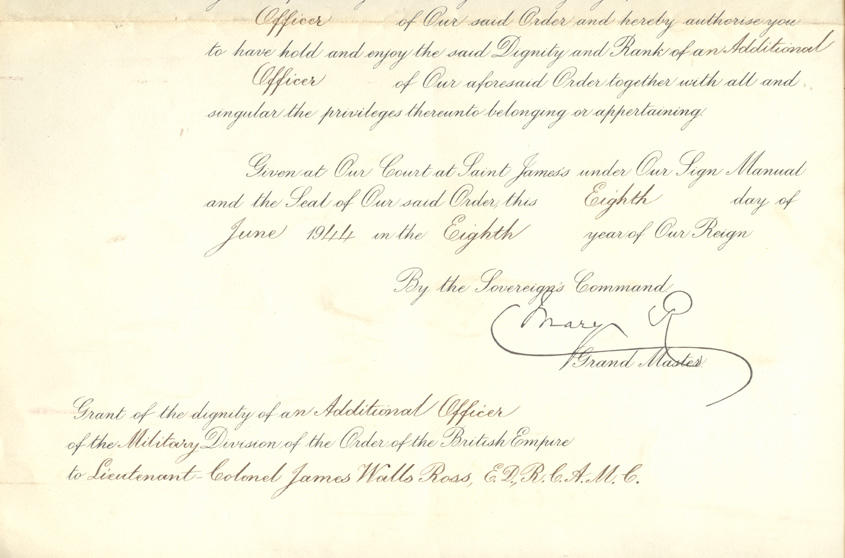 Officer of Our said Order and hereby authorise you
to have hold and enjoy the said Dignity and Rank of an Additional
Officer of Our aforesaid Order together with all and
singular the privileges thereunto belonging or appertaining.
Given at Our Court at Saint James's under Our Sign Manual
and the Seal of Our said Order, this Eighth day of
June 1944 in the Eighth year of Our Reign
By the Sovereign's Command
Mary R
Grand Master.
Grant of the dignity of an Additional Officer
of the Military Division of the Order of the British Empire
to Lieutenant-Colonel James Walls Ross, E.D., R.C.A.M.C.